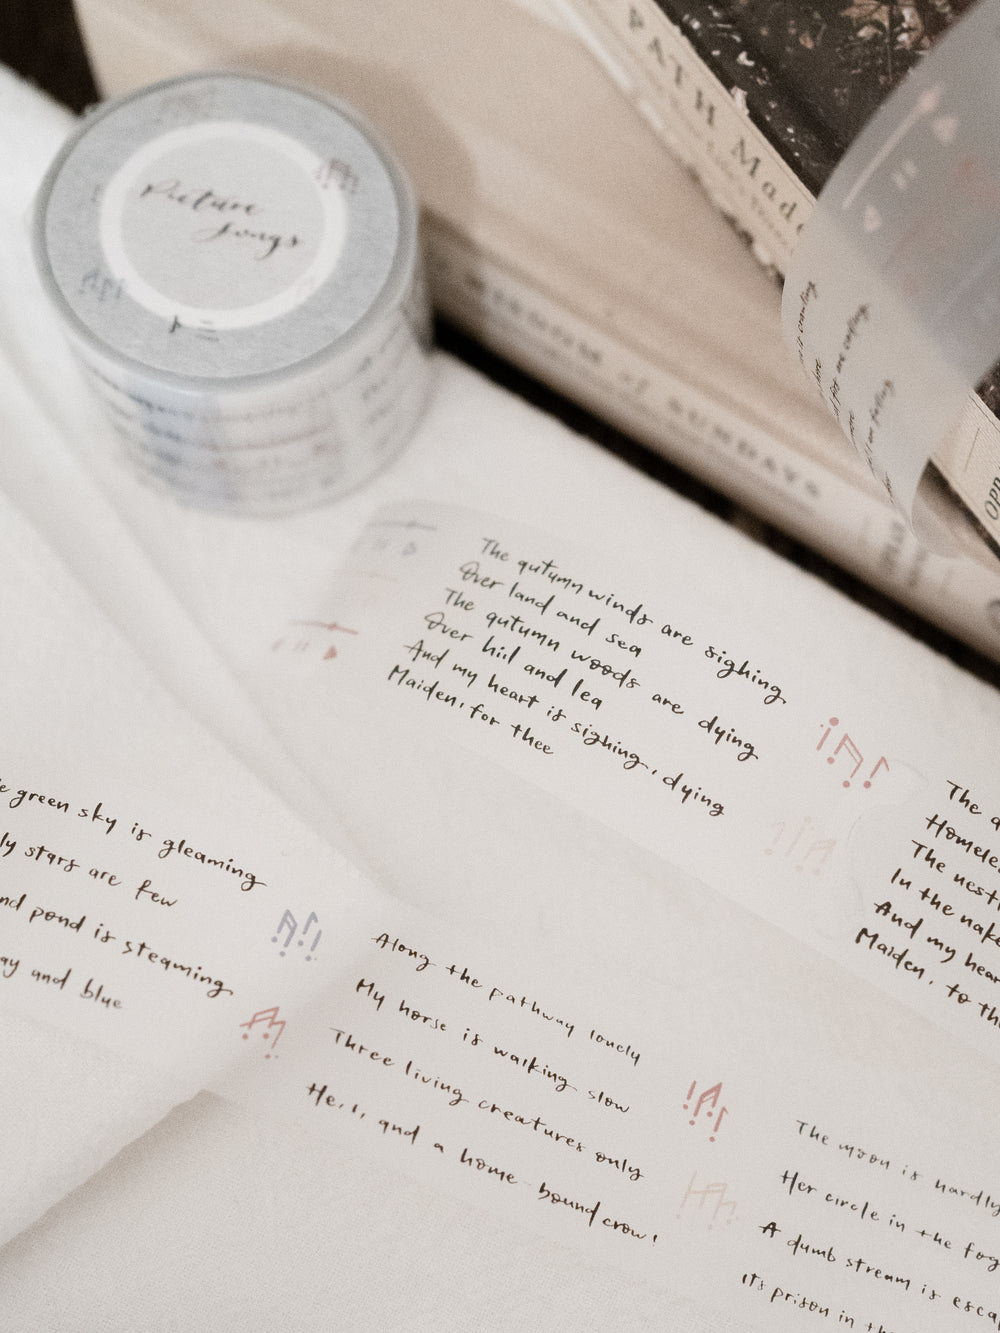 Picture
Songs
PATH Made
WISDOM of SUNDAYS
The autumn winds are sighing
Over land and sea
The autumn woods are dying
Over hill and lea
And my heart is sighing, dying
Maiden, for thee
The
Homele
The nest
In the nake
And my hear
Maiden, to th
green sky is gleaming
stars are few
pond is steaming
and blue
Along the pathway lonely
My horse is walking slow
Three living creatures only
He, I, and a home-bound crow!
The moon is hardly
Her circle in the fog
A dumb stream is esca
Its prison in th